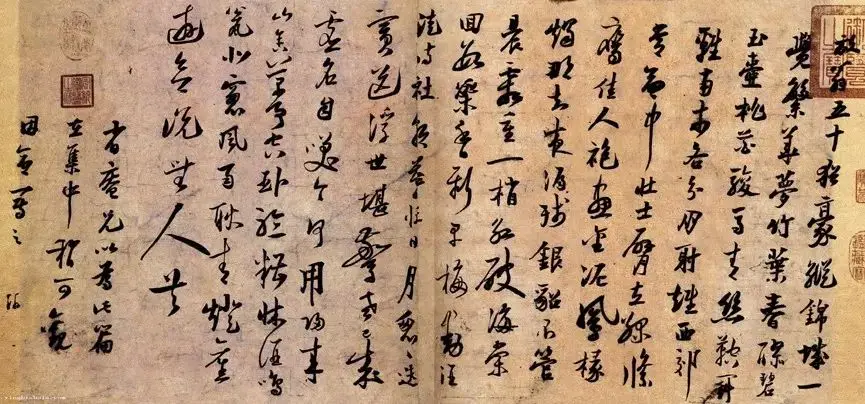 放翁五十猶豪縱錦城一
覺繁華夢竹葉春醪碧
玉壺桃花駿馬青絲鞚鬭
雞南市各分朋射雉西郊
常命中壯士臂立綠絛
鷹佳人袍畫金泥鳳椽
燭那知夜漏殘銀貂不管
晨霜重一梢紅破海棠
回數蘂香新早梅動酒
徒詩社朝暮忙日月匆匆迭
賓送浮世堪驚老已成
虛名自笑今何用歸來
山舍萬事空卧聽糟牀酒鳴
甕北窗風雨耿青燈舊
遊欲說無人共
省菴兄以為此篇
在集中稍可觀
因命寫之
游